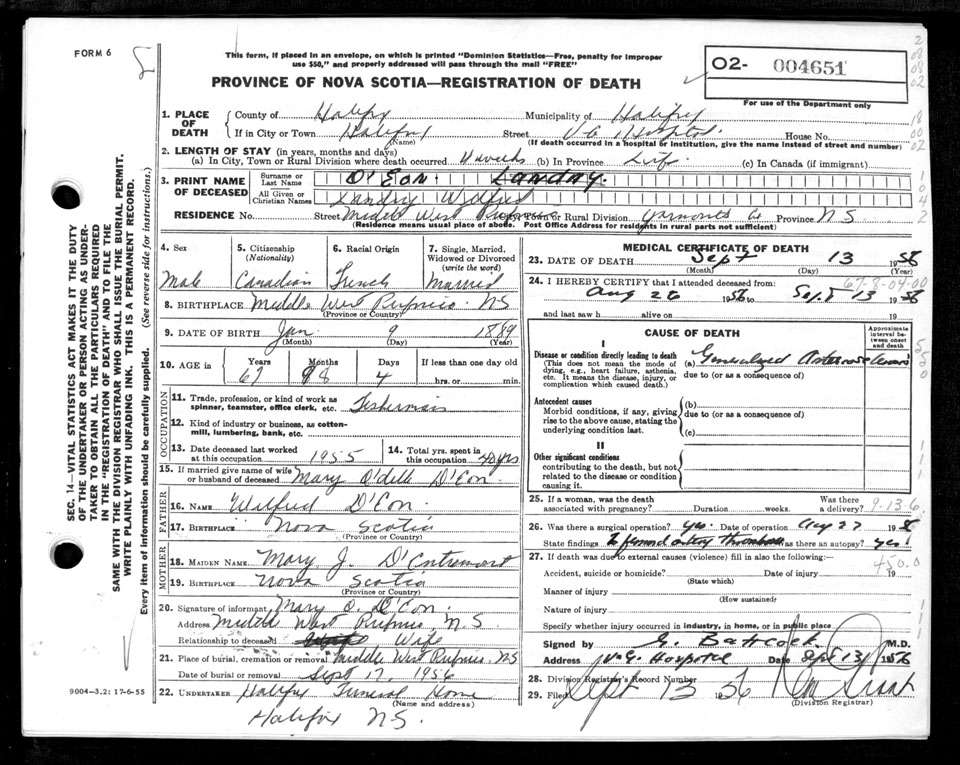 FORM 6
This form, if placed in an envelope, on which is printed "Dominion Statistics—Free, penalty for improper
use $50," and properly addressed will pass through the mail "FREE"
PROVINCE OF NOVA SCOTIA—REGISTRATION OF DEATH
O2- 004651
For use of the Department only
1. PLACE OF DEATH
County of Halifax Municipality of Halifax
If in City or Town Halifax Street V.G. Hospital House No.
(Name) (If death occurred in a hospital or institution, give the name instead of street and number)
2. LENGTH OF STAY (in years, months and days)
(a) In City, Town or Rural Division where death occurred weeks (b) In Province Life (c) In Canada (if immigrant)
3. PRINT NAME OF DECEASED
Surname or Last Name D'Eon. Landry.
All Given or Christian Names Landry Wilfred
RESIDENCE No. Street Middle West Pubnico or Rural Division Yarmouth Co Province N S
(Residence means usual place of abode. Post Office Address for residents in rural parts not sufficient)
4. Sex
Male
5. Citizenship
(Nationality)
Canadian
6. Racial Origin
French
7. Single, Married,
Widowed or Divorced
(write the word)
Married
8. BIRTHPLACE Middle West Pubnico. NS
(Province or Country)
9. DATE OF BIRTH Jan. 9 1889
(Month) (Day) (Year)
10. AGE in
Years Months Days If less than one day old
67 8 4 hrs. or min.
OCCUPATION
11. Trade, profession, or kind of work as
spinner, teamster, office clerk, etc. Fisherman
12. Kind of industry or business, as cotton-
mill, lumbering, bank, etc.
13. Date deceased last worked
at this occupation 1955
14. Total yrs. spent in
this occupation 40 yrs
15. If married give name of wife
or husband of deceased Mary O'dille D'Eon.
FATHER
16. NAME Wilfred D'Eon
17. BIRTHPLACE Nova Scotia
(Province or Country)
MOTHER
18. MAIDEN NAME Mary J. D'Entremont
19. BIRTHPLACE Nova Scotia
(Province or Country)
20. Signature of informant Mary O. D'Eon.
Address Middle West Pubnico N.S.
Relationship to deceased Wife
21. Place of burial, cremation or removal Middle West Pubnico. NS
Date of burial or removal Sept 17, 1956
22. UNDERTAKER Halifax Funeral Home
(Name and address)
Halifax N.S.
MEDICAL CERTIFICATE OF DEATH
23. DATE OF DEATH Sept 13 1956
(Month) (Day) (Year)
24. I HEREBY CERTIFY that I attended deceased from:
67-8-04-00
Aug 26 1956 to Sept 13 1956
and last saw h alive on 19
CAUSE OF DEATH
Approximate
interval be-
tween onset
and death
I
Disease or condition directly leading to death
(This does not mean the mode of
dying, e.g., heart failure, asthenia,
etc. It means the disease, injury, or
complication which caused death.)
(a) Generalized Arteriosclerosis
due to (or as a consequence of)
Antecedent causes
Morbid conditions, if any, giving
rise to the above cause, stating the
underlying condition last.
(b)
due to (or as a consequence of)
(c)
II
Other significant conditions
contributing to the death, but not
related to the disease or condition
causing it.
25. If a woman, was the death
associated with pregnancy? Duration weeks. Was there
a delivery?
9.136
26. Was there a surgical operation? yes. Date of operation Aug 27 1956
State findings femoral artery thrombosis Was there an autopsy? yes!
27. If death was due to external causes (violence) fill in also the following:—
450.0
Accident, suicide or homicide? Date of injury 19
(State which)
Manner of injury
(How sustained)
Nature of injury
Specify whether injury occurred in industry, in home, or in public place
Signed by G. Battcock M.D.
Address V.G. Hospital Date Sept 13/1956
28. Division Registrar's Record Number
29. Filed Sept 13 1956
(Division Registrar)
SEC. 14—VITAL STATISTICS ACT MAKES IT THE DUTY
OF THE UNDERTAKER OR PERSON ACTING AS UNDER-
TAKER TO OBTAIN ALL THE PARTICULARS REQUIRED
IN THE "REGISTRATION OF DEATH" AND TO FILE THE
SAME WITH THE DIVISION REGISTRAR WHO SHALL ISSUE THE BURIAL PERMIT.
WRITE PLAINLY WITH UNFADING INK. THIS IS A PERMANENT RECORD.
Every item of information should be carefully supplied. (See reverse side for instructions.)
9004-3.2: 17-6-55